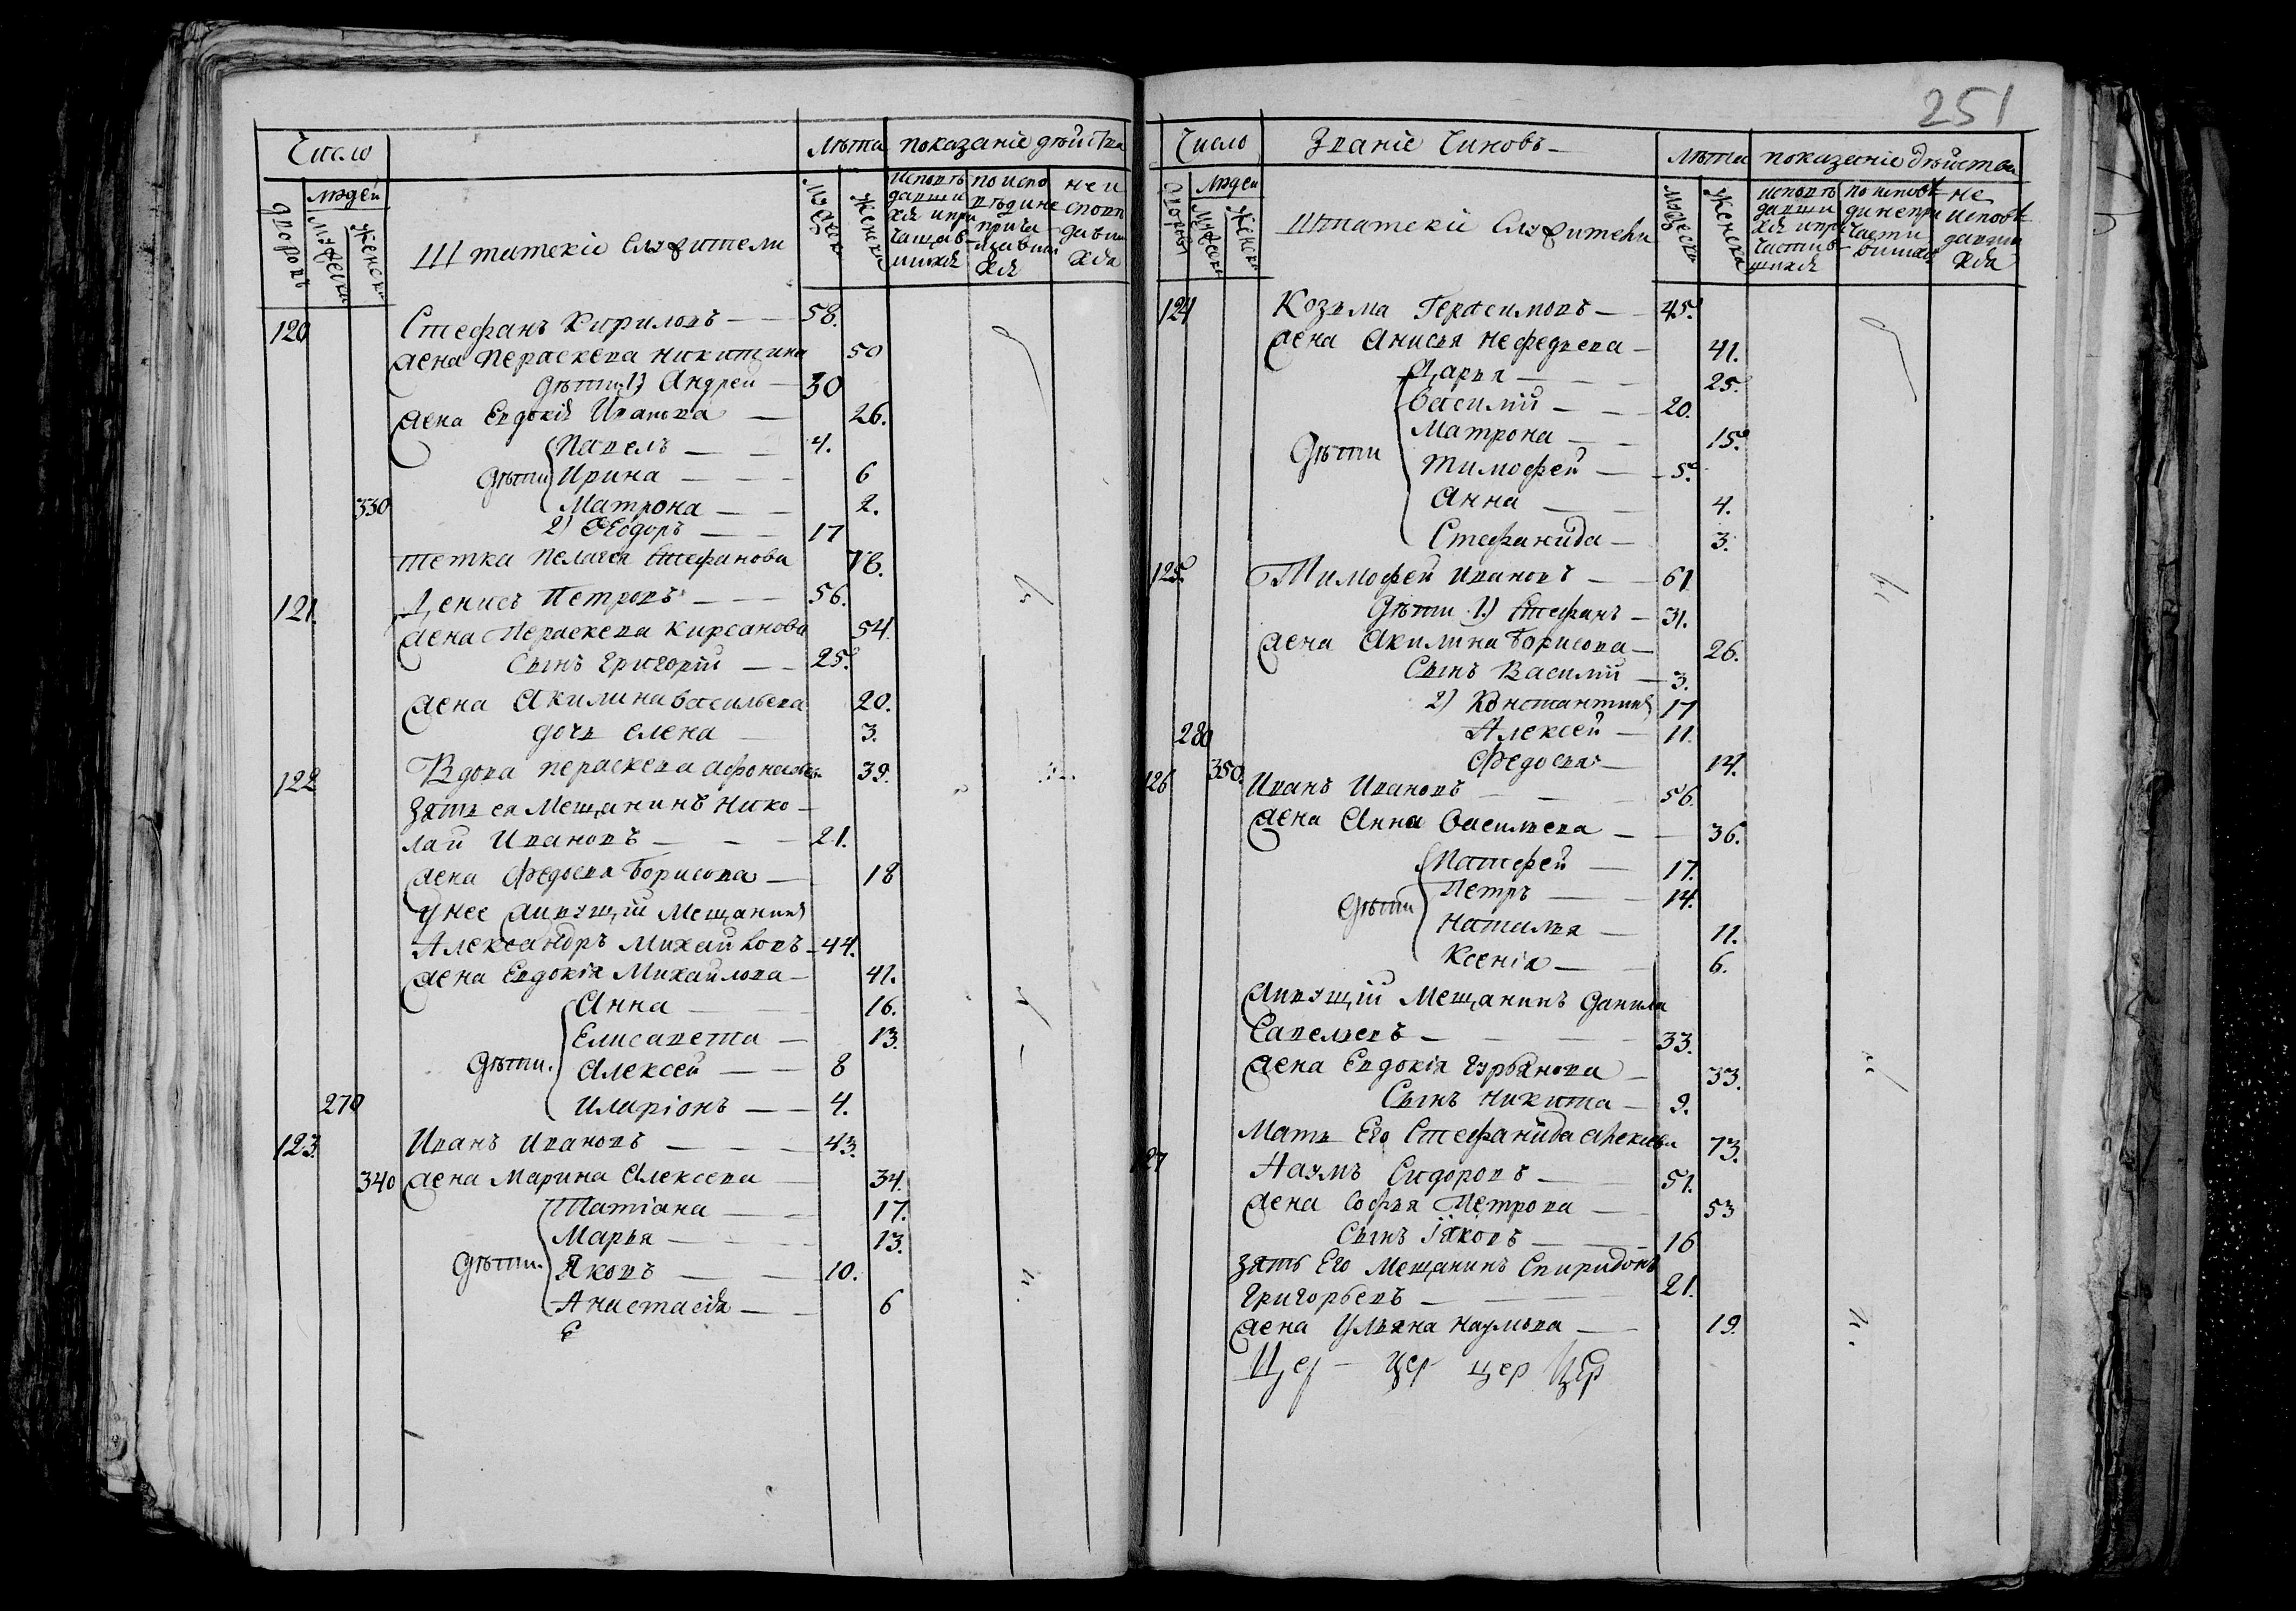 Число
Лѣта показаніе дѣйства
людей
дворовъ
мужеска
женска
Штатскіе служители
мужеска
женска
исповѣ по испо не и
давши вѣди не спови
хся и при прича давши
чащав щавши хся
шихся хся
120 Стефанъ Кириловъ — 58.
жена Параскева Никитина 50
дѣти 1) Андрей — 30
жена Евдокія Иванова — 26.
Павелъ — 4.
дѣти Ирина — 6
330 Матрона — 2.
2) Ѳеодоръ — 17
тетка Пелагея Стефанова 78.
121. Денисъ Петровъ — 56.
жена Параскева Кирсанова 54.
Сынъ Григорій — 25.
жена Акилина Васильева 20.
дочь Елена — 3.
122 Вдова Параскева Афонасьева 39.
Зять ея Мещанинъ Нико-
лай Ивановъ — 21.
жена Федосья Борисова — 18
у нее живущій Мещанинъ
Александръ Михайловъ — 44.
жена Евдокія Михайлова — 41.
Анна — 16.
Елисавета — 13.
дѣти. Алексей — 8
270 Иларіонъ — 4.
123. Иванъ Ивановъ — 43.
340 жена Марина Алексева 34.
Татіана — 17.
Марья — 13.
дѣти. Яковъ — 10.
Анастасія — 6
Е
251
Число Званіе Чиновъ — Лѣта показаніе дѣйства
людей
дворовъ
мужеска
женска
Штатскіе Служители
мужеска
женска
исповѣ по исповѣ не
давши ди непри исповѣ
хся и при части давши
частив вшихся хся
шихся
124 Козьма Герасимовъ — 45.
жена Анисья Нефедьева — 41.
Дарья — 25.
Василій — 20.
Матрона — 15.
дѣти Тимофей — 5.
Анна — 4.
Стефанида — 3.
125. Тимофей Ивановъ — 61
дѣти 1) Стефанъ — 31.
жена Акилина Борисова — 26.
Сынъ Василій — 3.
2) Константинъ 17
280 Алексей — 11.
350. Федосья — 14.
126 Иванъ Ивановъ — 56.
жена Анна Васильева — 36.
Матфей — 17.
дѣти Петръ — 14.
Наталья — 11.
Ксенія — 6.
живущій Мещанинъ Данила
Савельевъ — 33.
жена Евдокія Курбанова — 33.
Сынъ Никита — 9.
Мать Его Стефанида Алексеева 73.
127 Наумъ Сидоровъ — 51.
жена Софья Петрова — 53
Сынъ Іяковъ — 16
зять Его Мещанинъ Спиридонъ
Григорьевъ — 21.
жена Ульяна Наумова — 19.
Цер — цер цер Цер